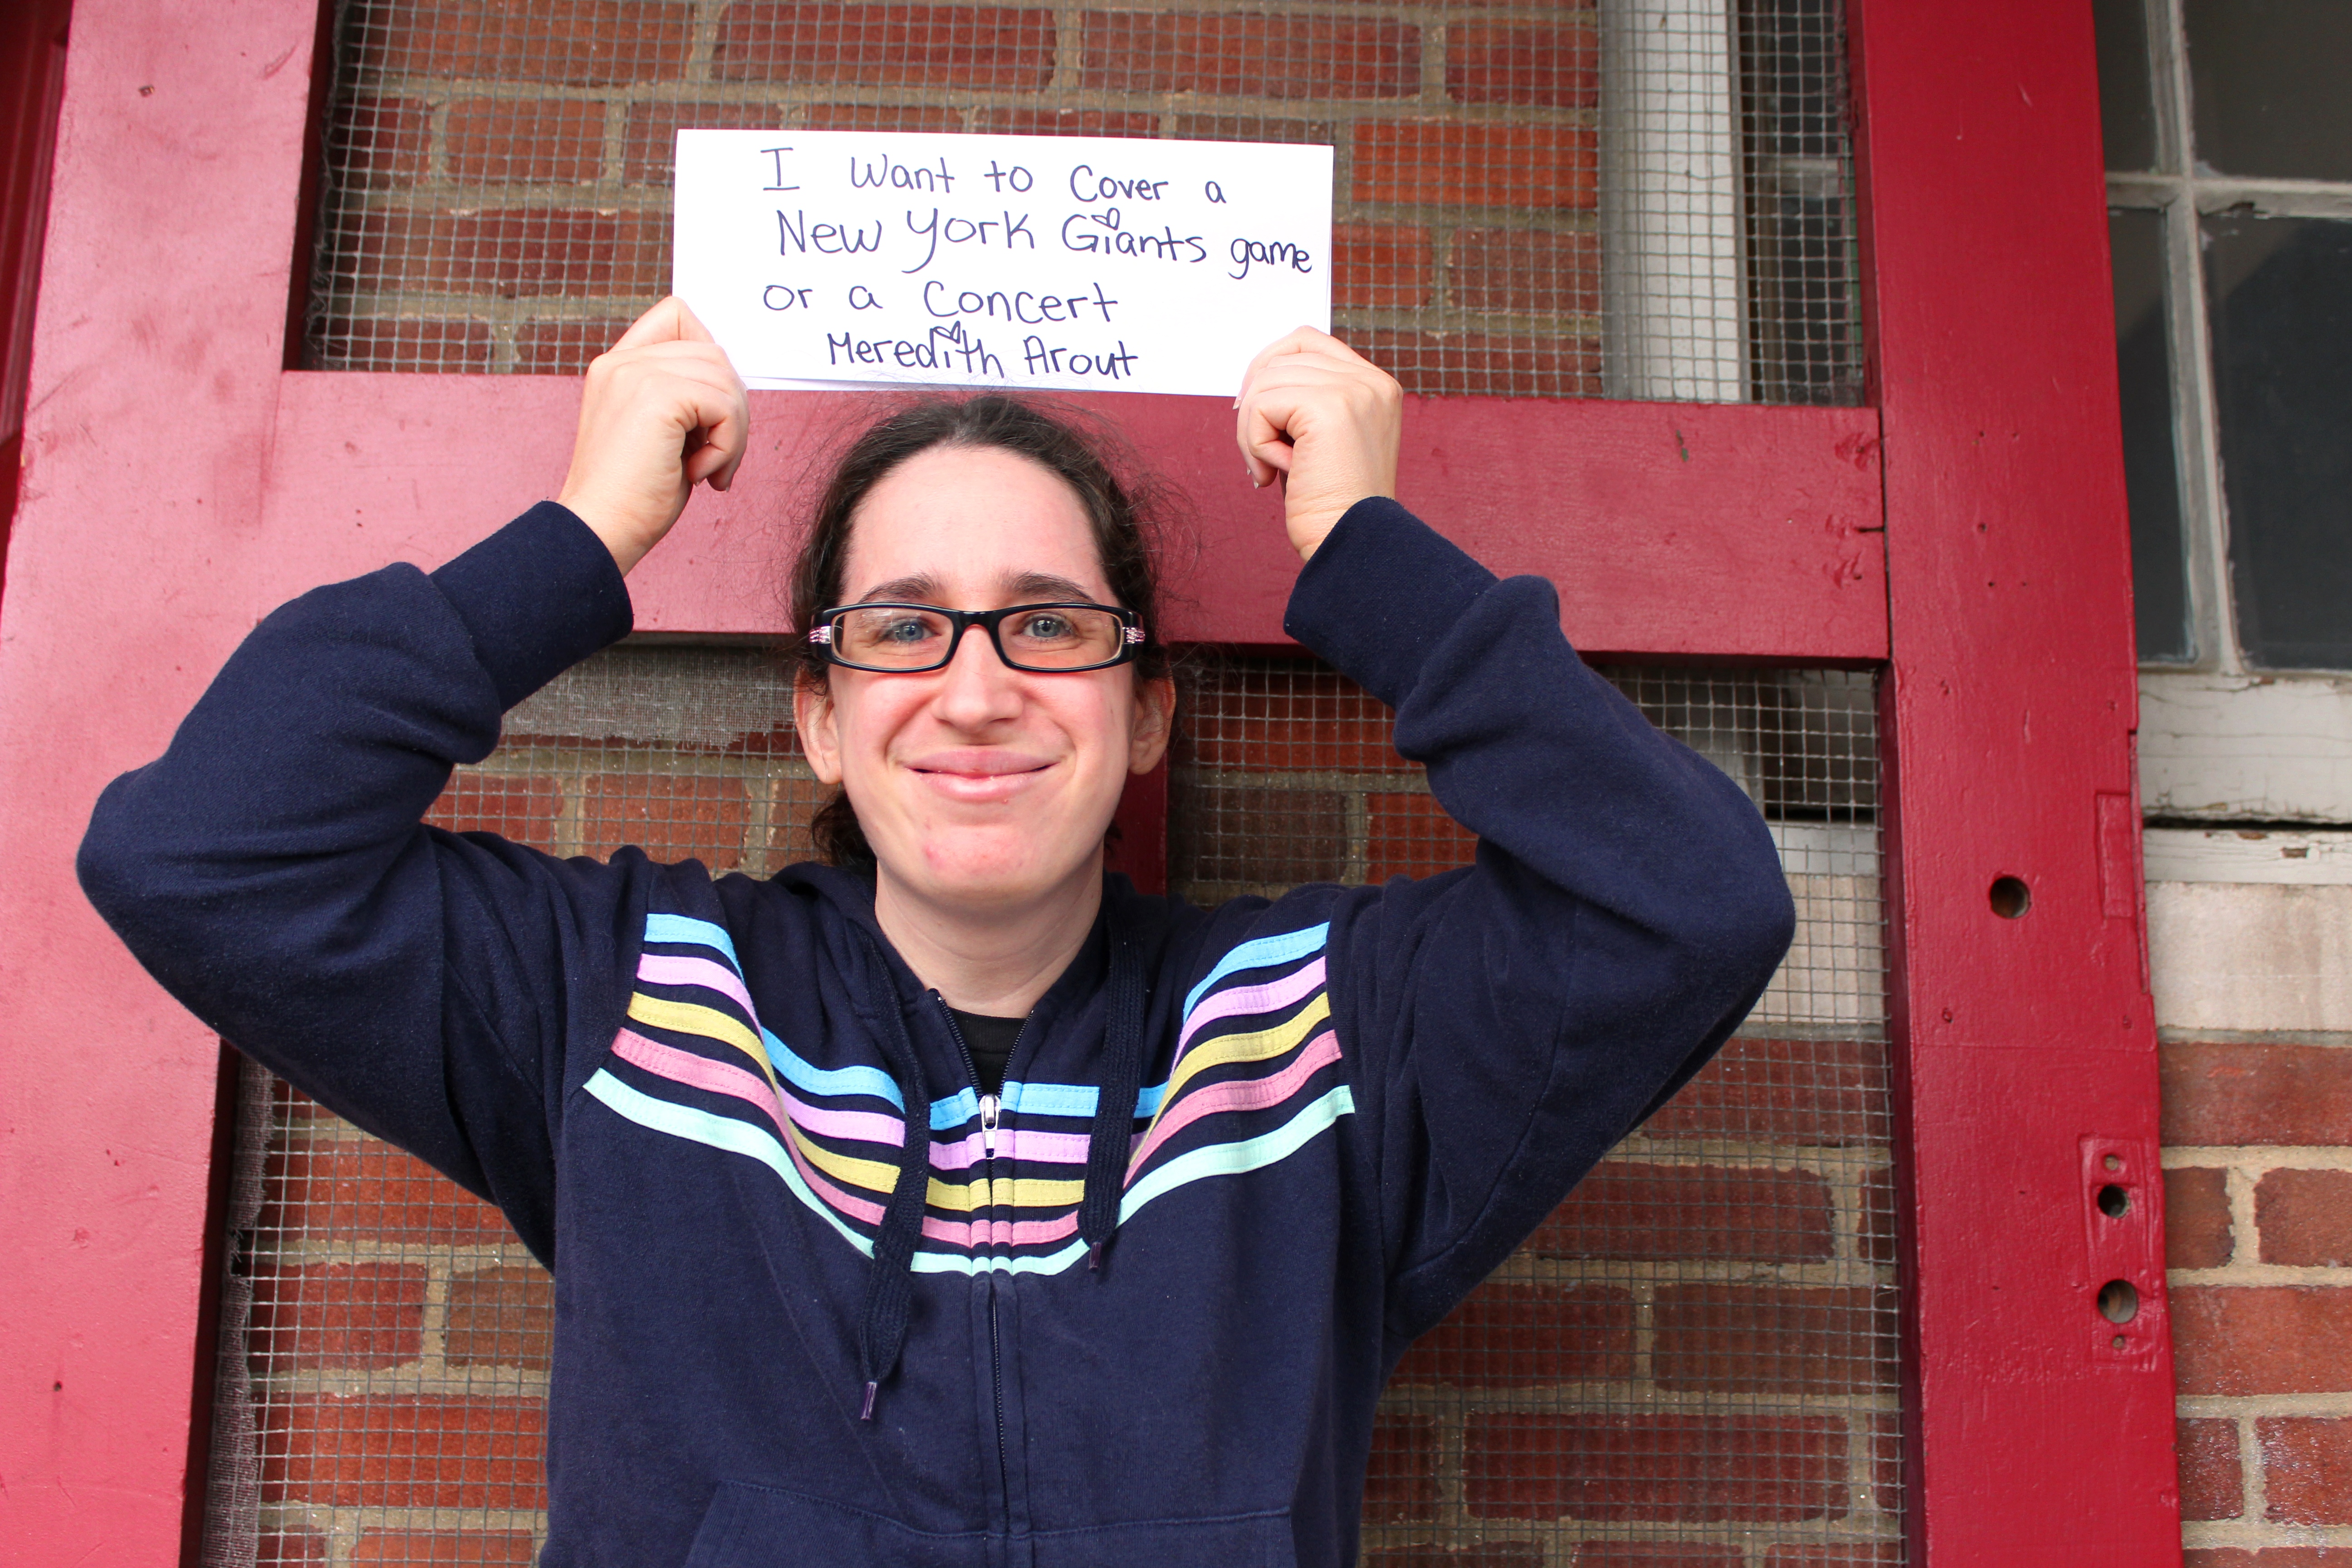 I want to cover a
New York Giants game
or a concert
Meredith Arout